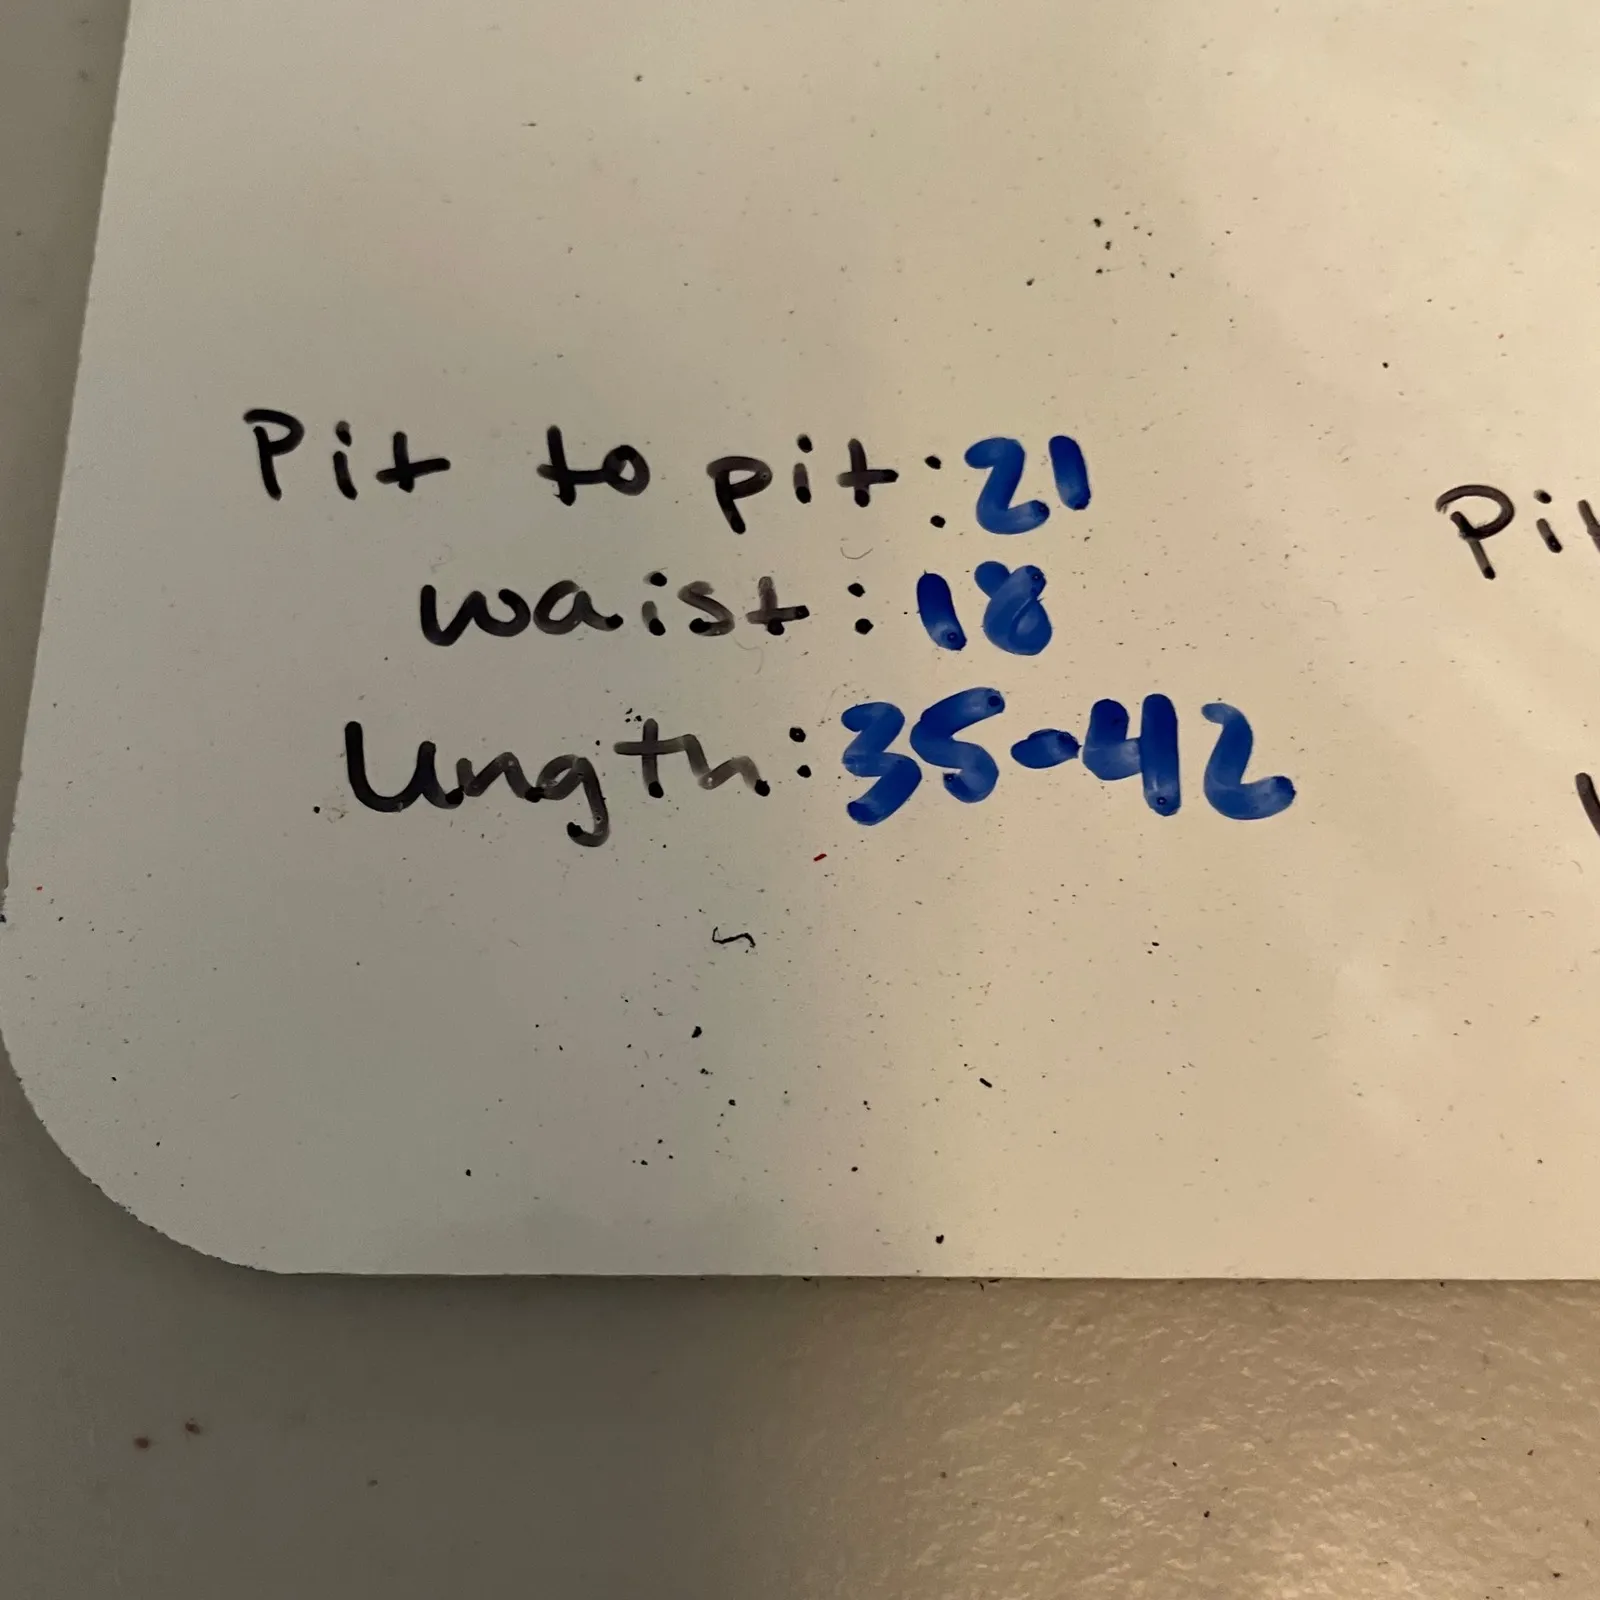 Pit to pit: 21
waist: 18
length: 35-42
Pit